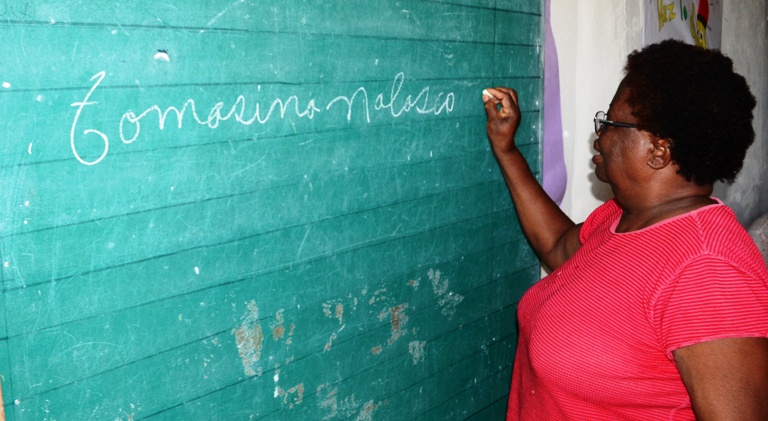 Tomasina Nolasco